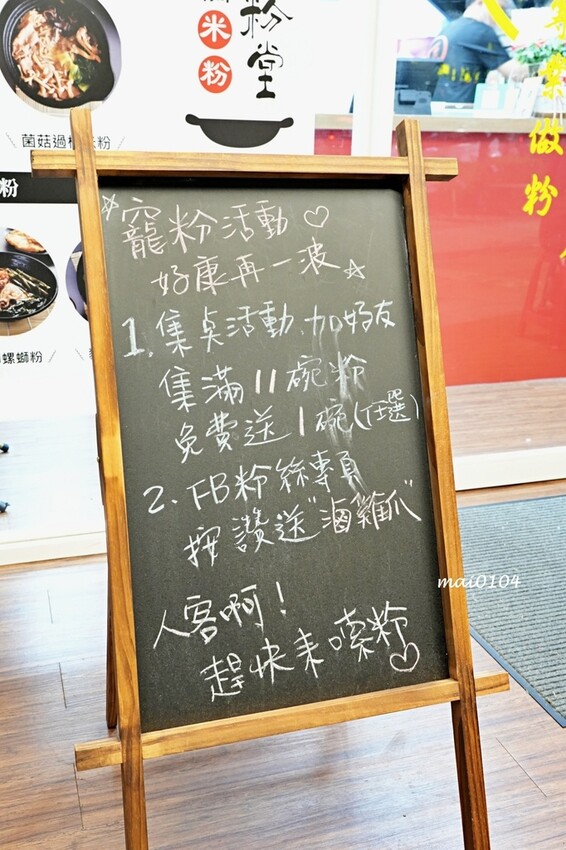 米粉
粉堂
菌菇過橋米粉
粉
螺螄粉
做粉
☆寵粉活動♡
好康再一波☆
1.集点活動、加好友
集滿11碗粉
免費送1碗(任選)
2.FB粉絲專頁
按讚送"滷雞爪"
人客啊!
趕快來嗦粉♡
mai0104